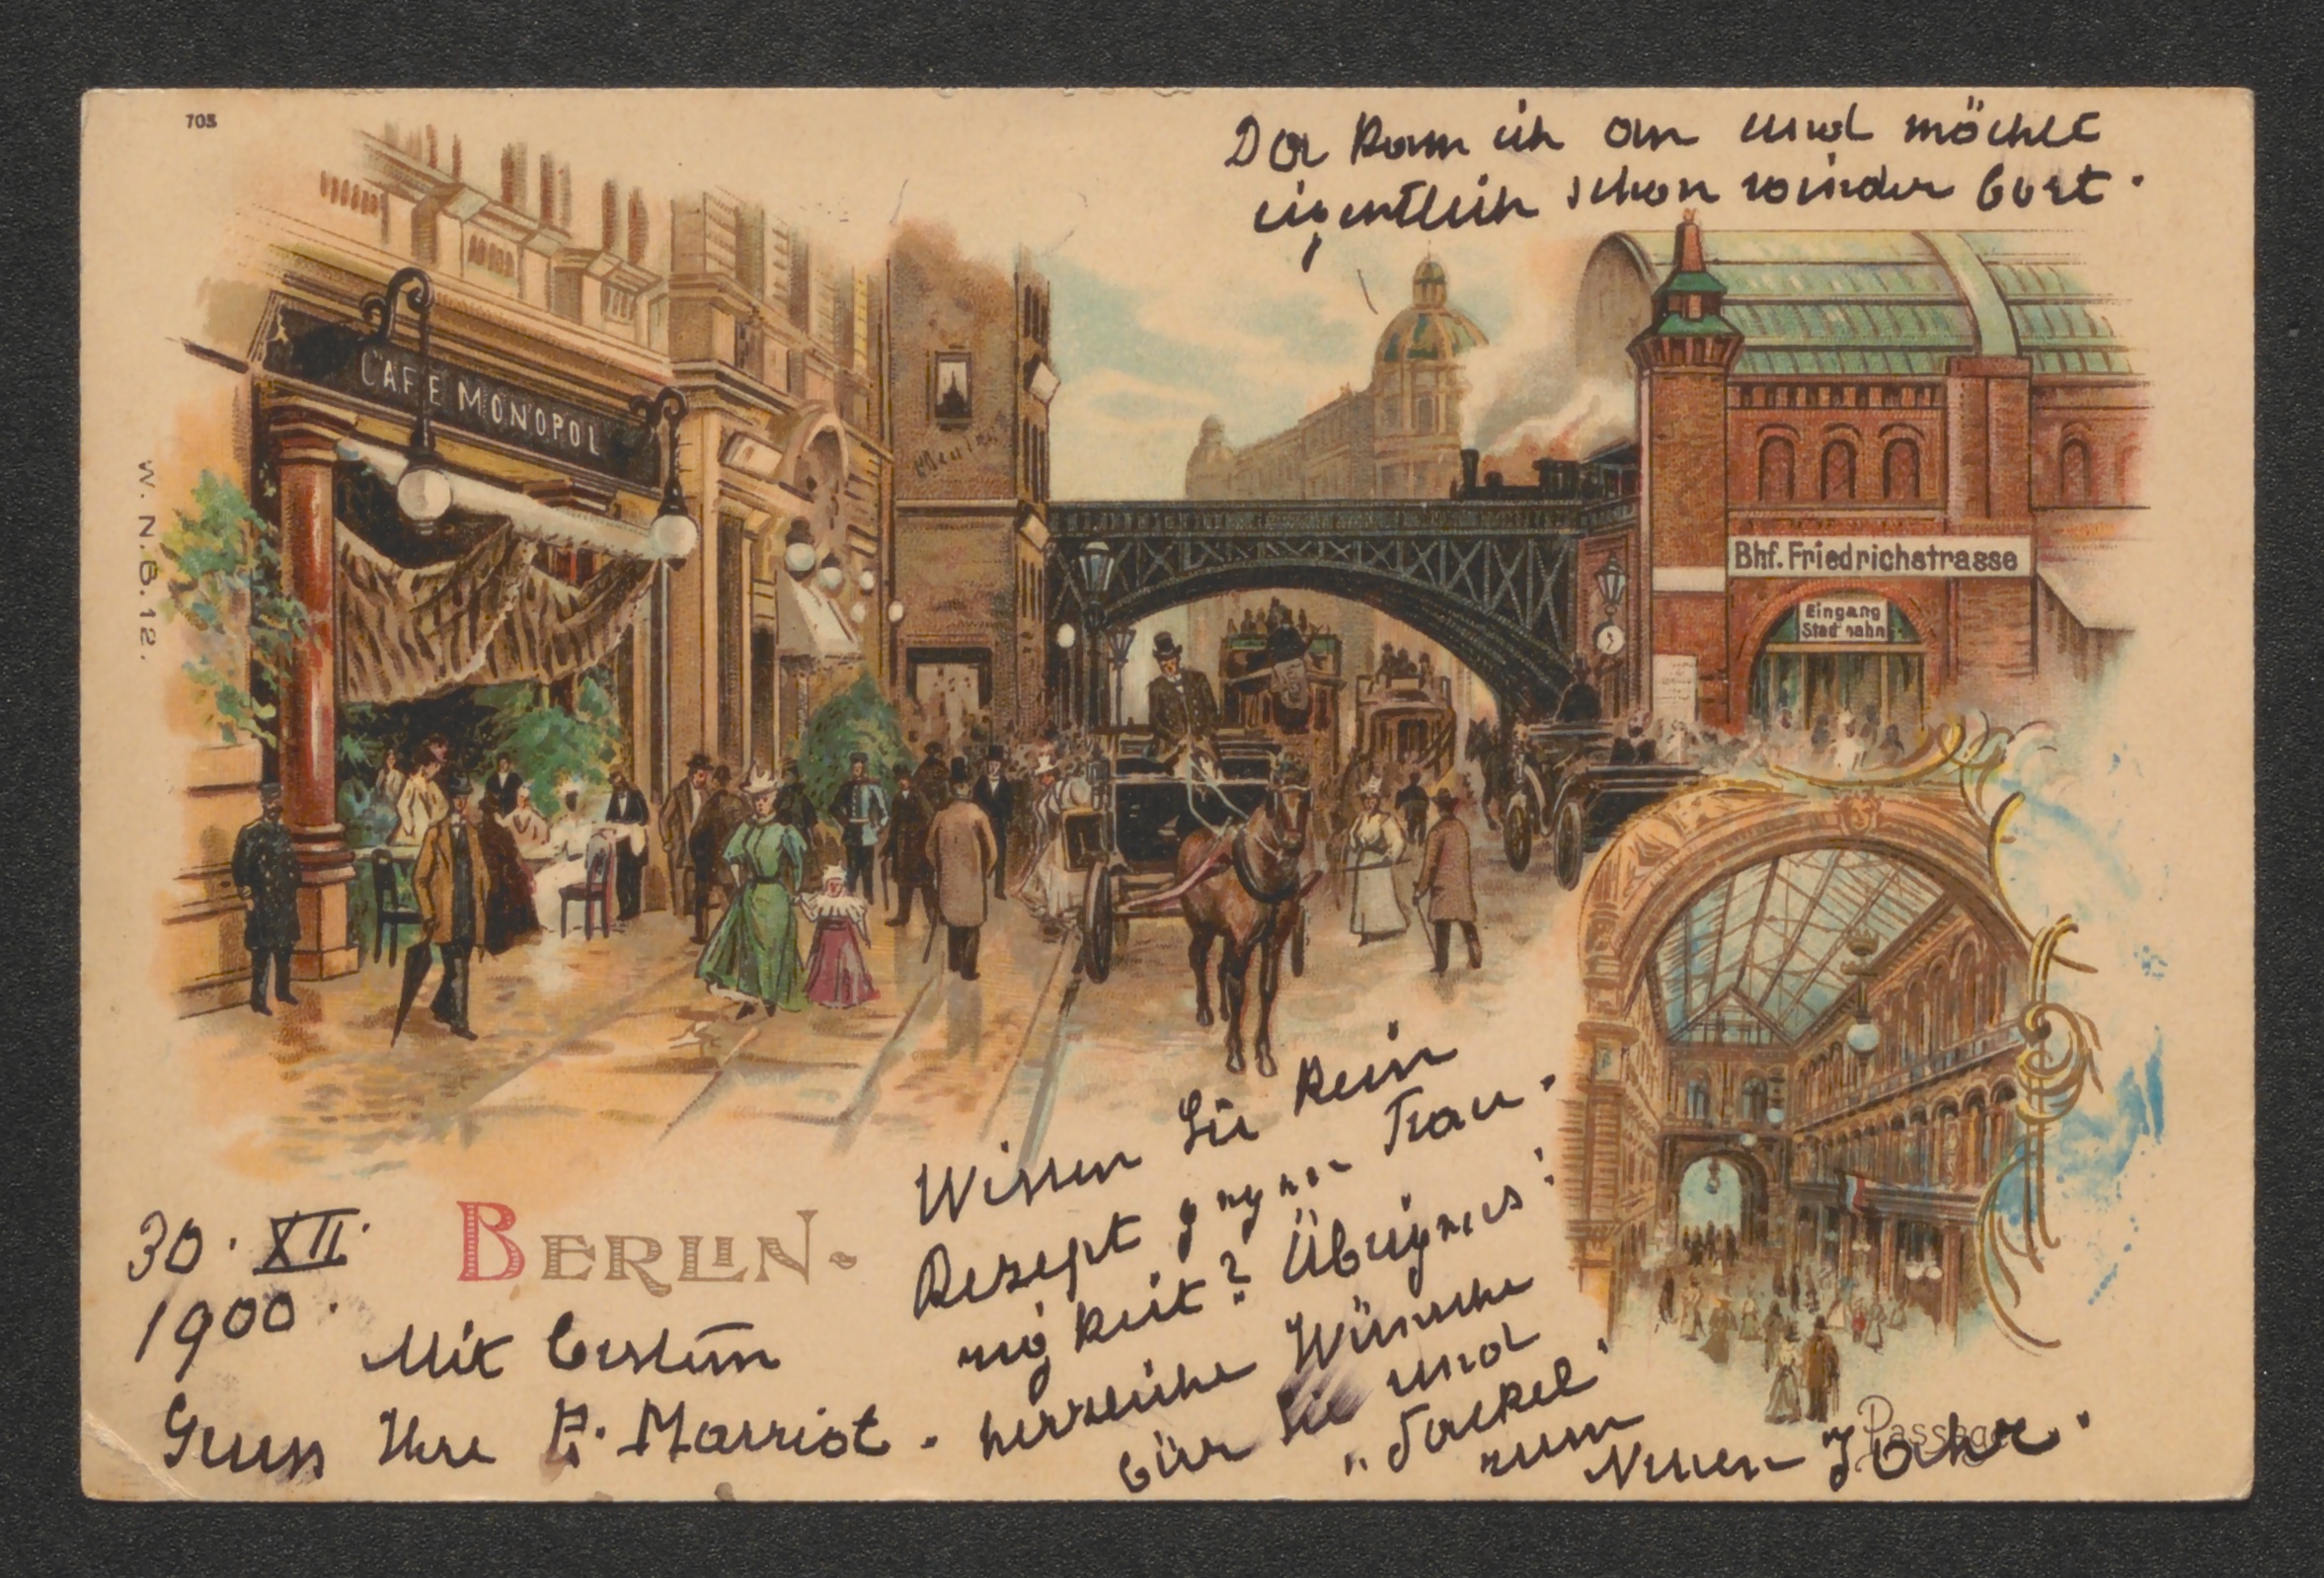 703
Da kam ich an und möchte
eigentlich schon wieder fort.
CAFE MONOPOL
W. N. B. 12.
Bhf. Friedrichstrasse
Eingang
Stadtbahn
Wissen Sie kein
Rezept gegen Trau-
rigkeit? Übrigens:
herzliche Wünsche
für Sie und
"Fackel"
zum
Neuen Jahr.
30. XII.
1900.
BERLIN-
Mit bestem
Gruss Ihre P. Marriot.
Passage